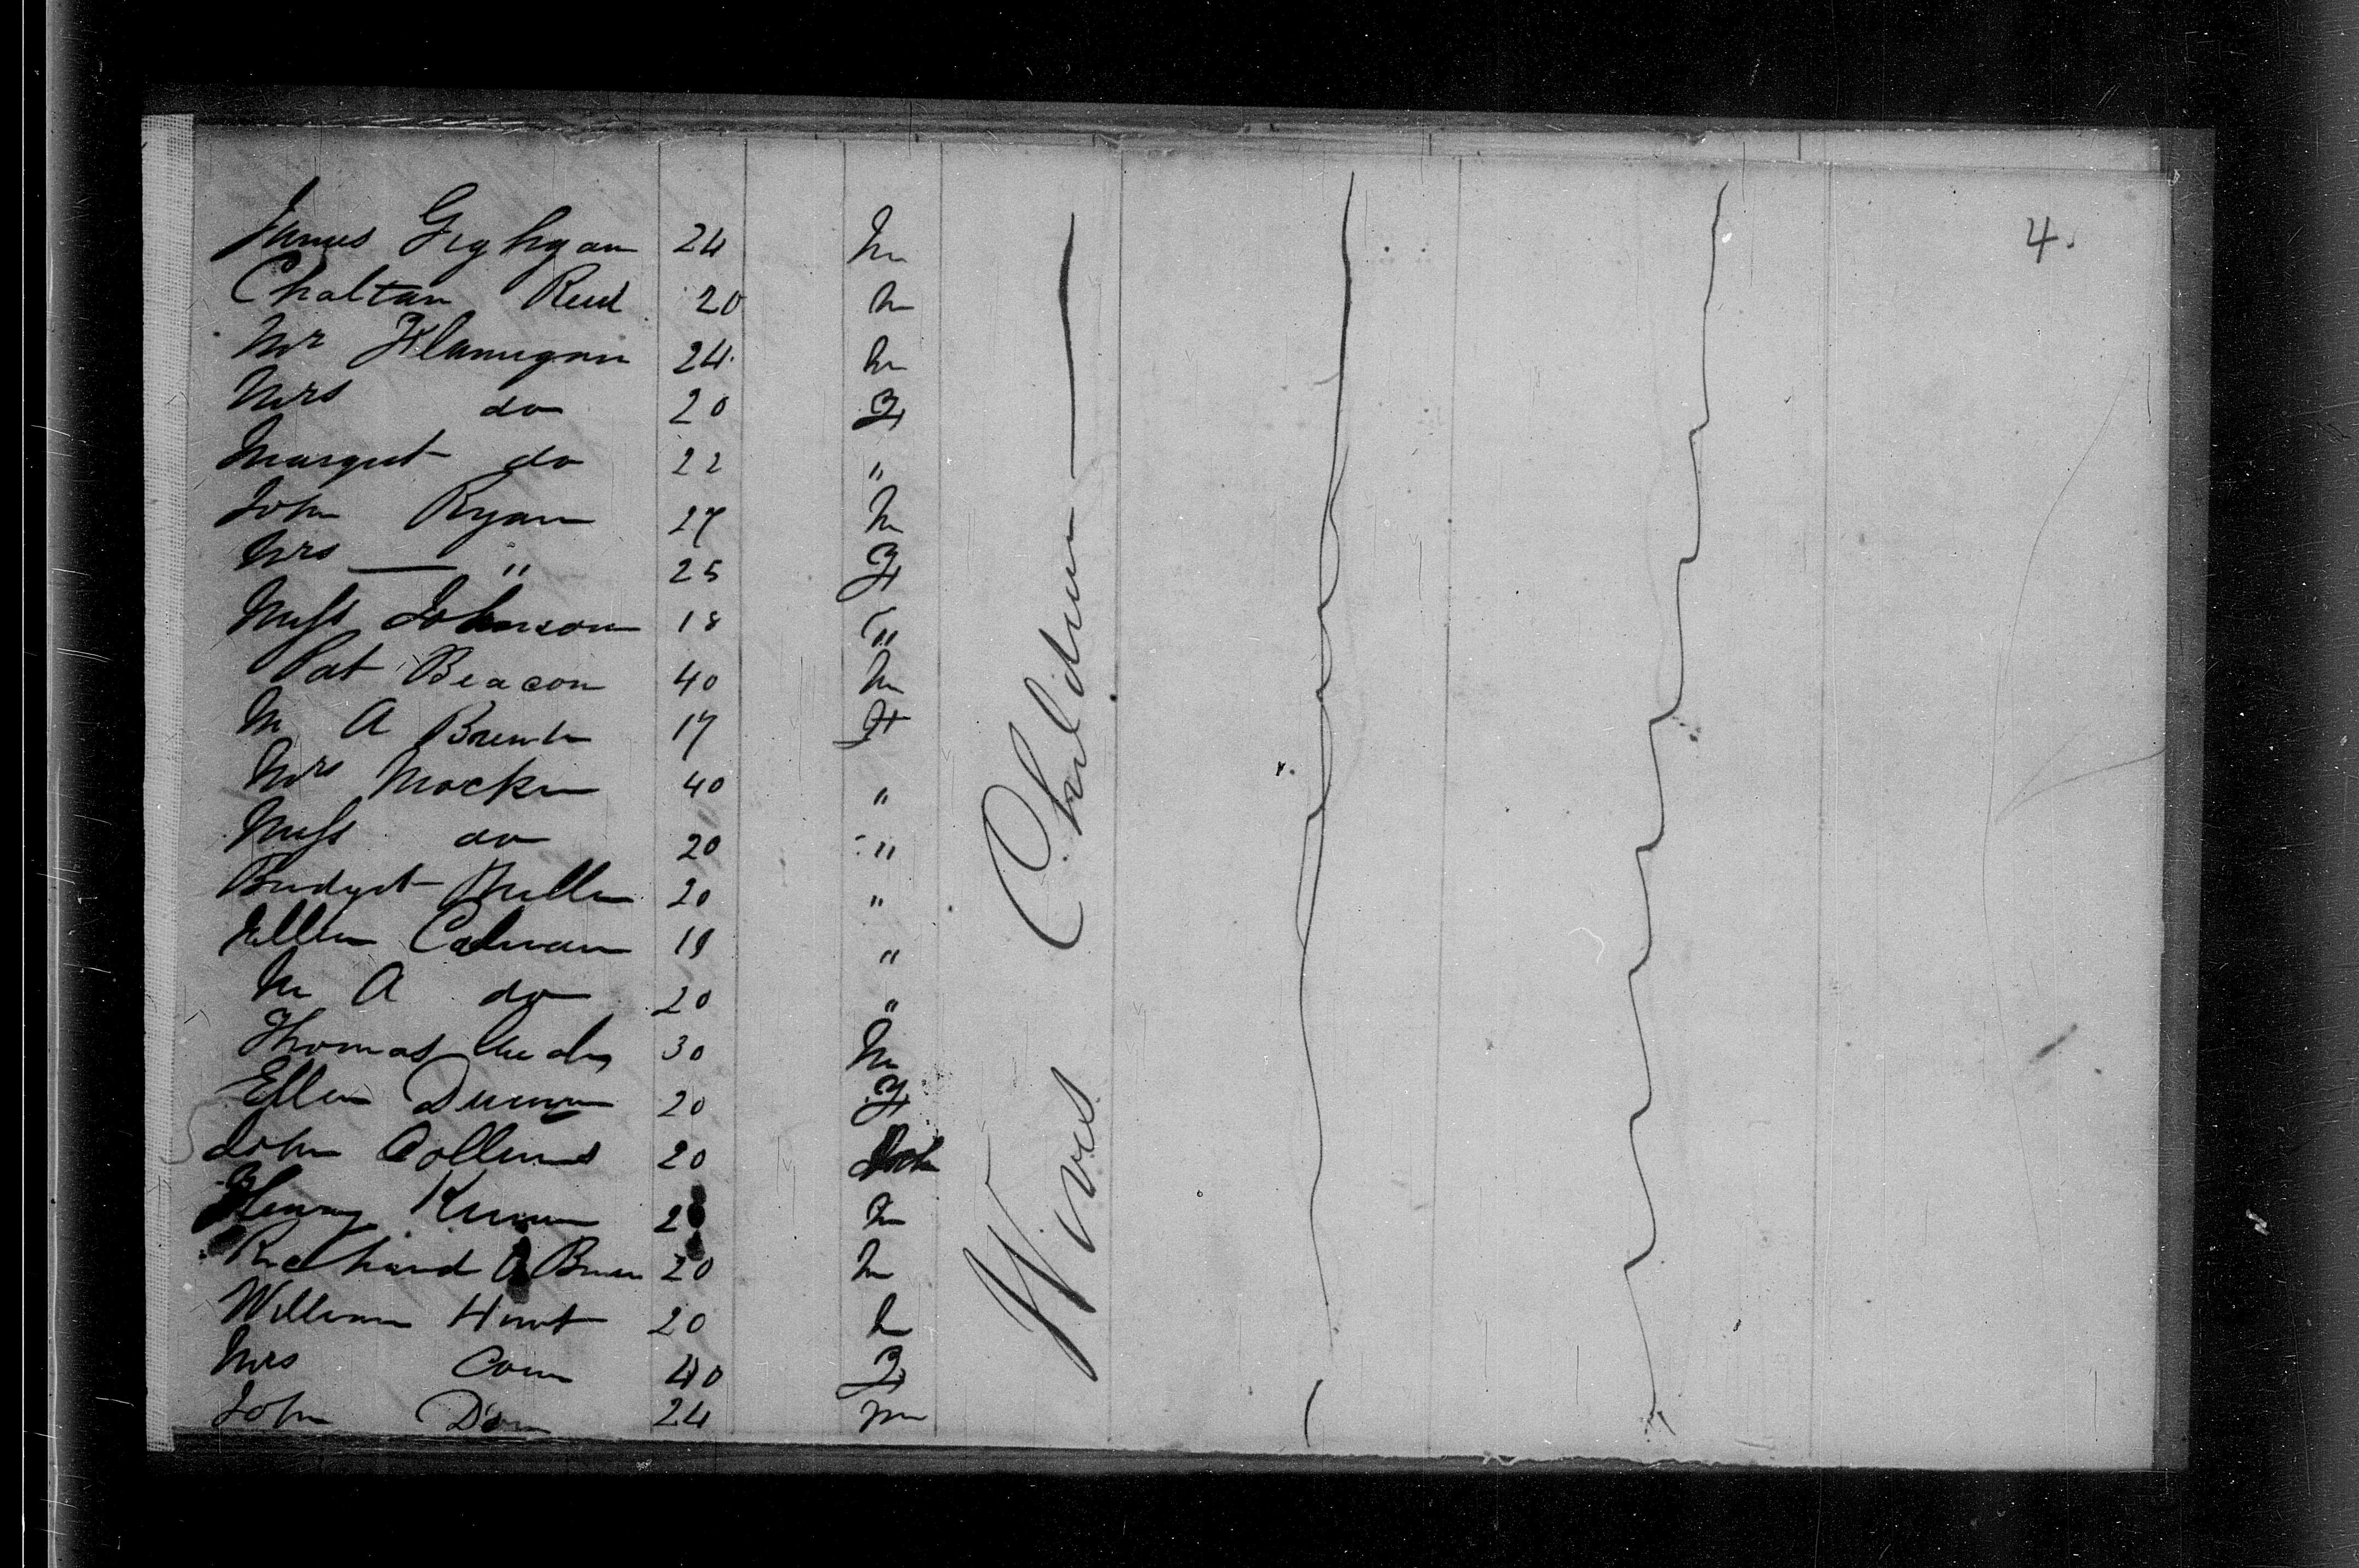 4.
James Gighgan 24 M
Chaltan Reed 20 M
Mr Flanigan 24 M
Mrs do 20 F
Margret do 22 "
John Ryan 27 M
Mrs — " 25 F
Miss Johnson 18 "
Pat Beacon 40 M
M A 17 F
Mrs Mackin 40 "
Miss do 20 "
Bridget 20 "
Ellen Calman 18 "
M A do 20 "
Thomas 30 M
Ellen 20 F
John Collins 20
Henry 2 M
Richard O Brien 20 M
William Hunt 20 M
Mrs 40 F
John 24 M
Wives Children